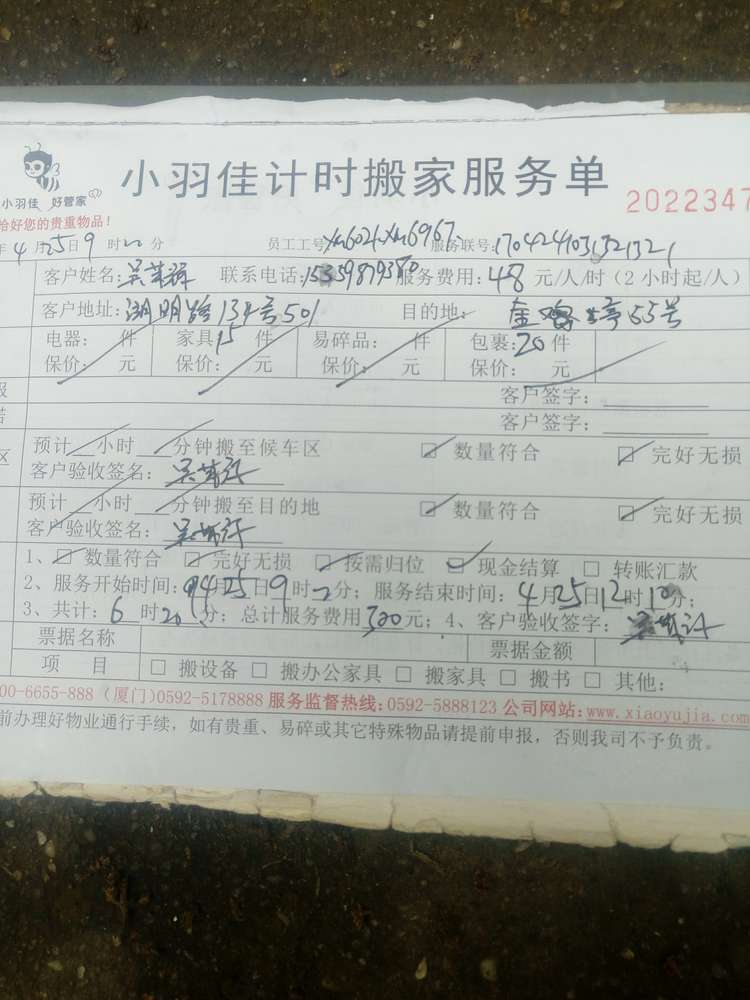 小羽佳 好管家
小羽佳计时搬家服务单
2022347
给好您的贵重物品!
年4月25日9时 分 员工工号 服务联号:
客户姓名: 联系电话: 服务费用:48元/人/时(2小时起/人)
客户地址:湖明路134号501 目的地: 55号
电器: 件 家具15件 易碎品: 件 包裹:20件
保价: 元 保价: 元 保价: 元 保价: 元
客户签字:
客户签字:
预计 小时 分钟搬至候车区 数量符合 完好无损
客户验收签名:
预计 小时 分钟搬至目的地 数量符合 完好无损
客户验收签名:
1、数量符合 完好无损 按需归位 现金结算 转账汇款
2、服务开始时间: 4月25日9时 分;服务结束时间:4月25日12时10分;
3、共计:6时20分;总计服务费用 元;4、客户验收签字:
票据名称 票据金额
项 目 □ 搬设备 □ 搬办公家具 □ 搬家具 □ 搬书 □ 其他:
00-6655-888(厦门)0592-5178888 服务监督热线:0592-5888123 公司网站:www.xiaoyujia.com
前办理好物业通行手续,如有贵重、易碎或其它特殊物品请提前申报,否则我司不予负责。